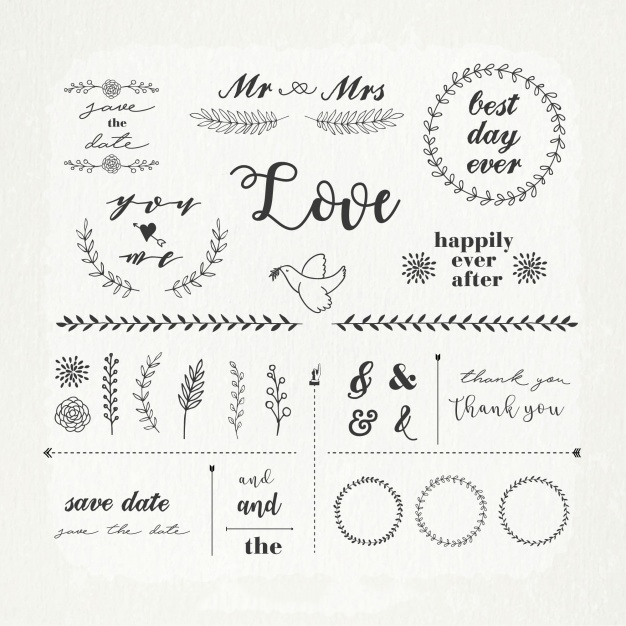 save
the
date
Mr Mrs
best
day
ever
Love
you
me
happily
ever
after
& &
& &
thank you
thank you
save date
save the date
and
and
the